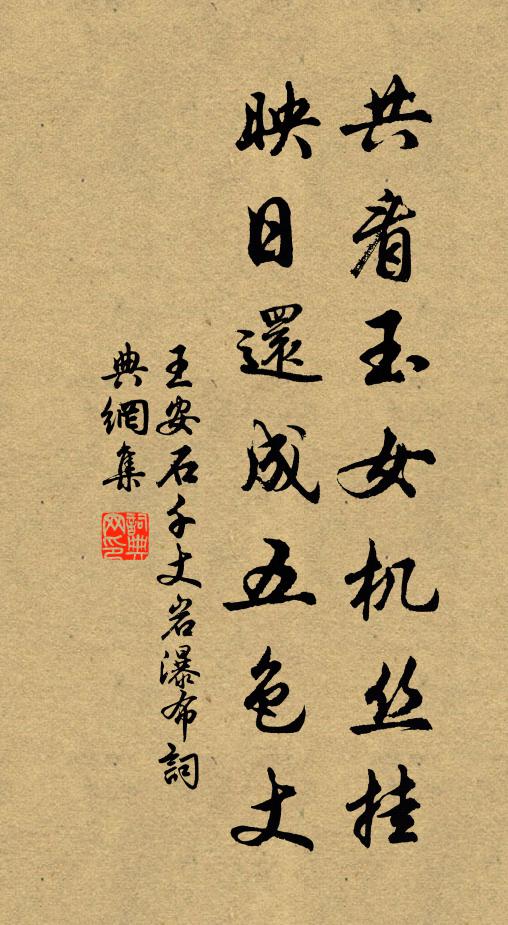 共看玉女机丝挂
映日還成五色丈
王安石千丈岩瀑布詞
典網集
詞典
网印